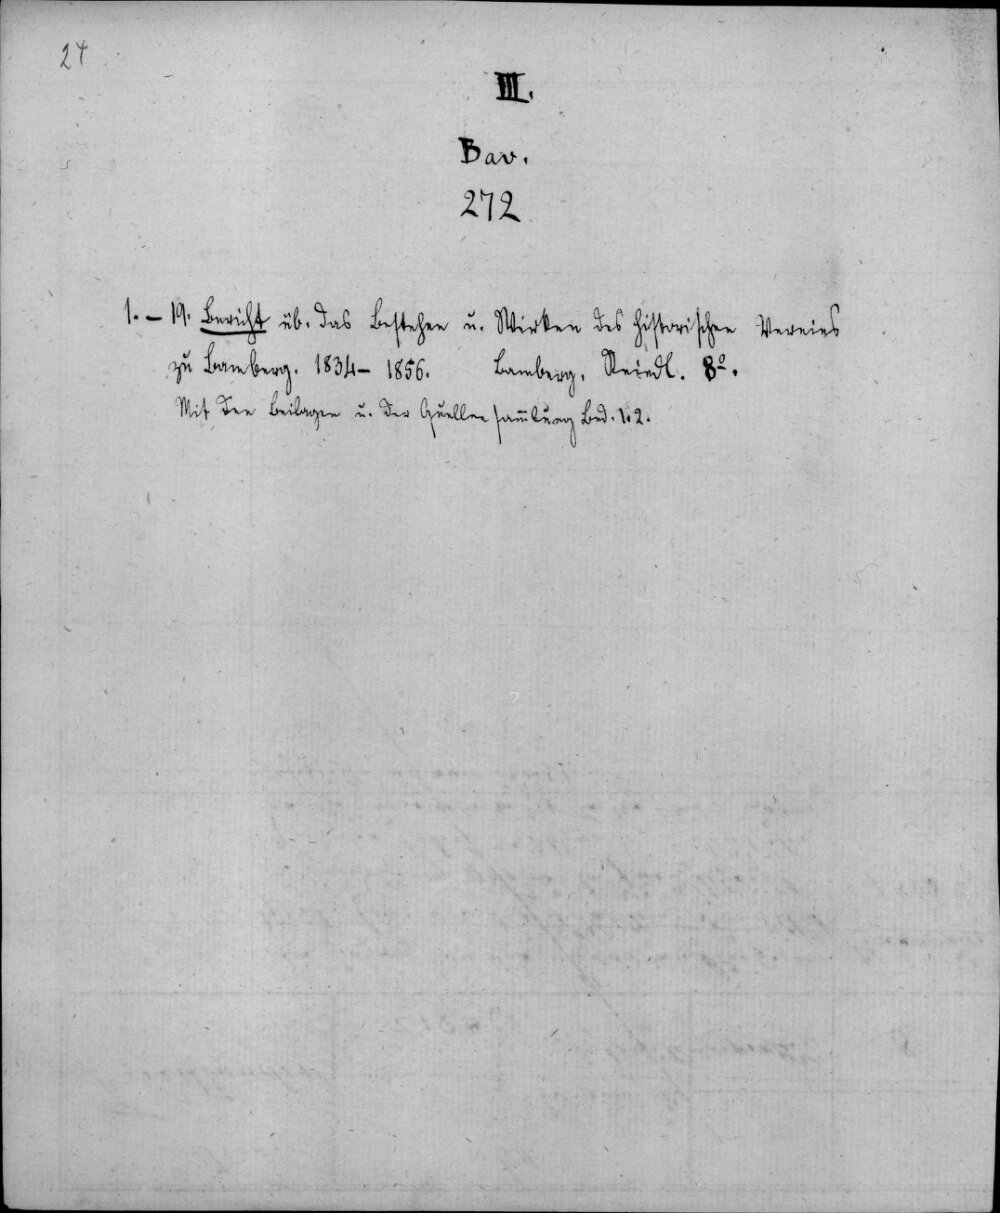 24
III.
Bav.
272
1. – 19. Bericht üb. das Bestehen u. Wirken des historischen Vereins
zu Bamberg. 1834 – 1856. Bamberg, Reindl. 8º.
Mit den Beilagen u. der Quellensam̅lung Bd. 1.2.